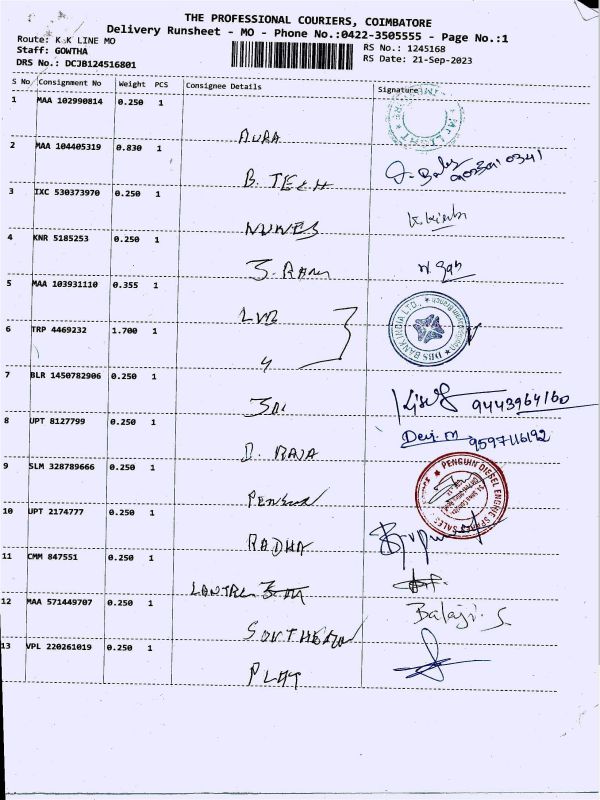 THE PROFESSIONAL COURIERS, COIMBATORE
Delivery Runsheet - MO - Phone No.:0422-3505555 - Page No.:1
Route: K K LINE MO
RS No.: 1245168
Staff: GOWTHA
RS Date: 21-Sep-2023
DRS No.: DCJB124516801
S No Consignment No Weight PCS Consignee Details Signature
1 MAA 102990814 0.250 1
AURA
2 MAA 104405319 0.830 1
B. TECH
3 IXC 530373970 0.250 1
4 KNR 5185253 0.250 1
J. RAM
5 MAA 103931110 0.355 1
LVB
DBS BANK INDIA LTD.,
6 TRP 4469232 1.700 1
7 BLR 1450782906 0.250 1
9443964160
8 UPT 8127799 0.250 1
Devi. m 9597116192
D. RAJA
9 SLM 328789666 0.250 1
PENGUIN DIESEL ENGINE SALES
10 UPT 2174777 0.250 1
RADHA
11 CMM 847551 0.250 1
12 MAA 571449707 0.250 1
Balaji. S
SOUTHERN
13 VPL 220261019 0.250 1
PLAT